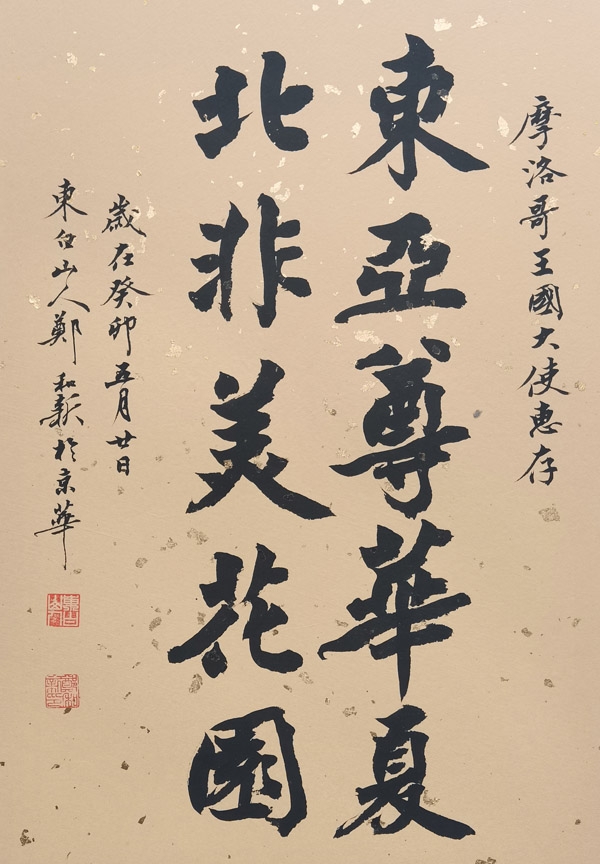 摩洛哥王國大使惠存
東亞尊華夏
北非美花園
歲在癸卯五月廿日
東白山人鄭和新於京華